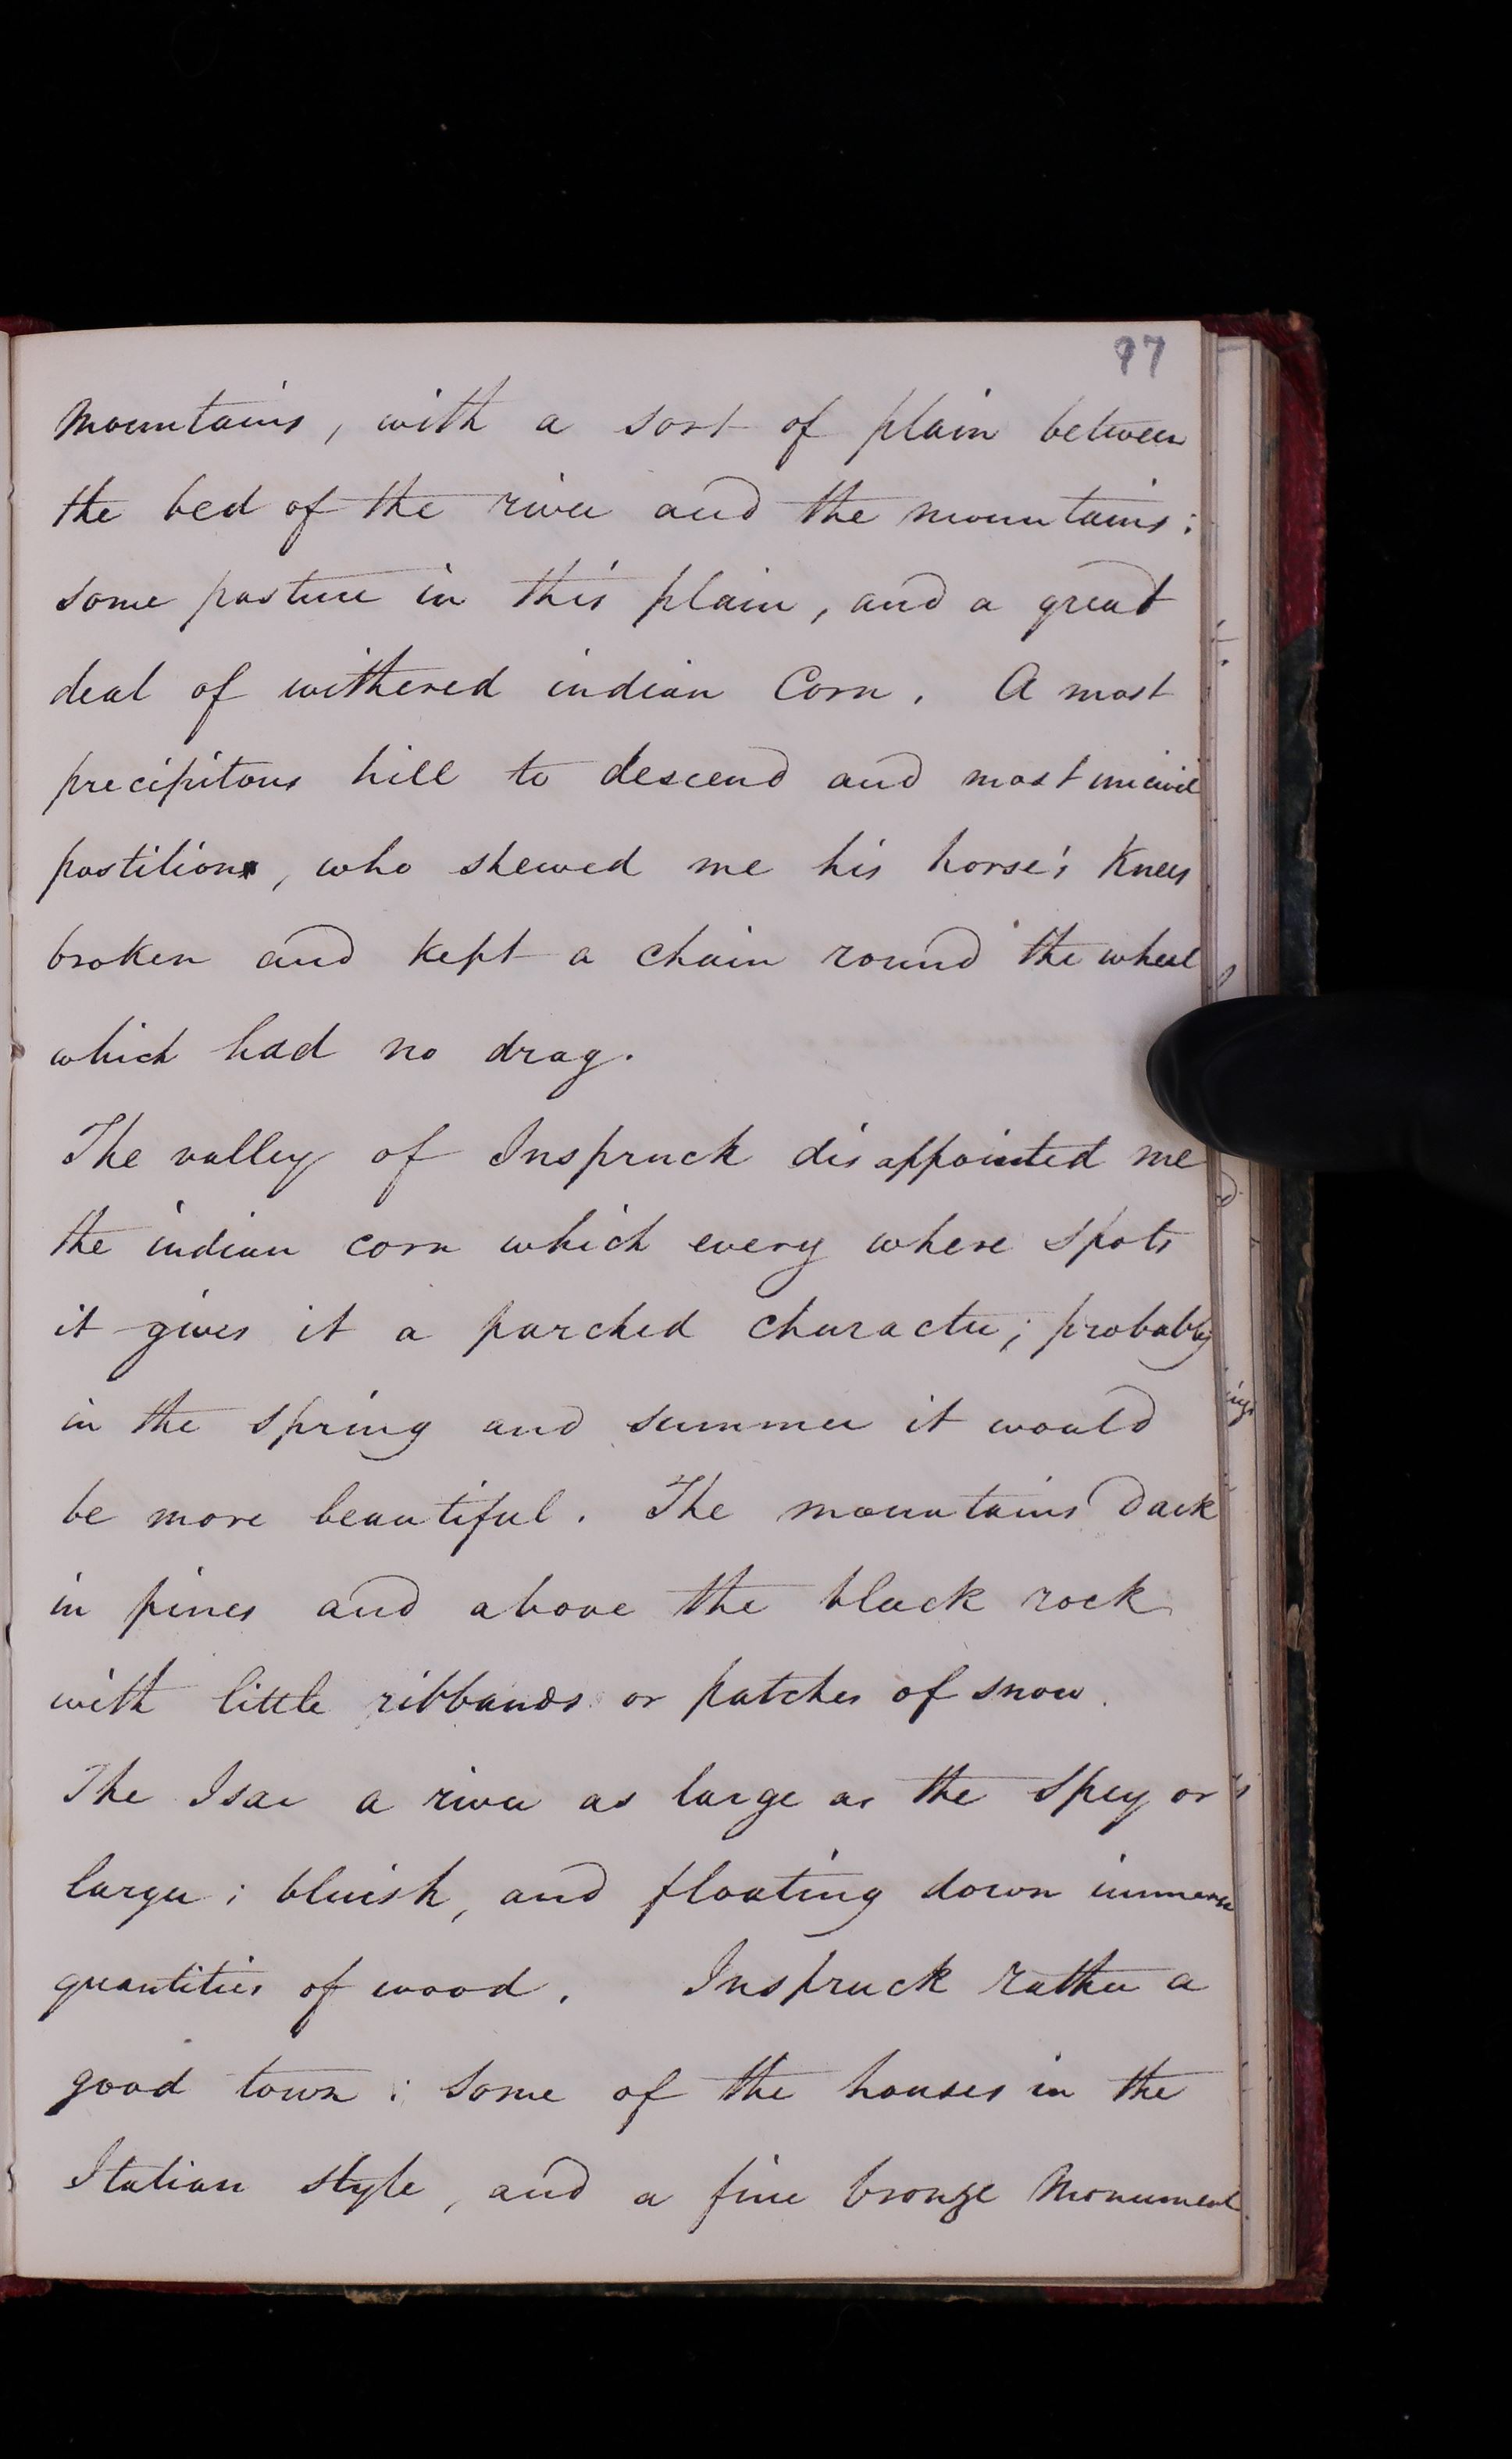 97
mountains, with a sort of plain between
the bed of the river and the mountains:
some pasture in this plain, and a great
deal of withered indian Corn. A most
precipitous hill to descend and most uncivil
postilion, who shewed me his horse's Knees
broken and kept a chain round the wheel
which had no drag.
The valley of Inspruck disappointed me
the indian corn which every where spots
it gives it a parched character; probably
in the spring and summer it would
be more beautiful. The mountains dark
in pines and above the black rock
with little ribbands or patches of snow.
The Isar a river as large as the Spey or
larger; bluish, and floating down immense
quantities of wood. Inspruck rather a
good town: some of the houses in the
Italian style, and a fine bronze Monument